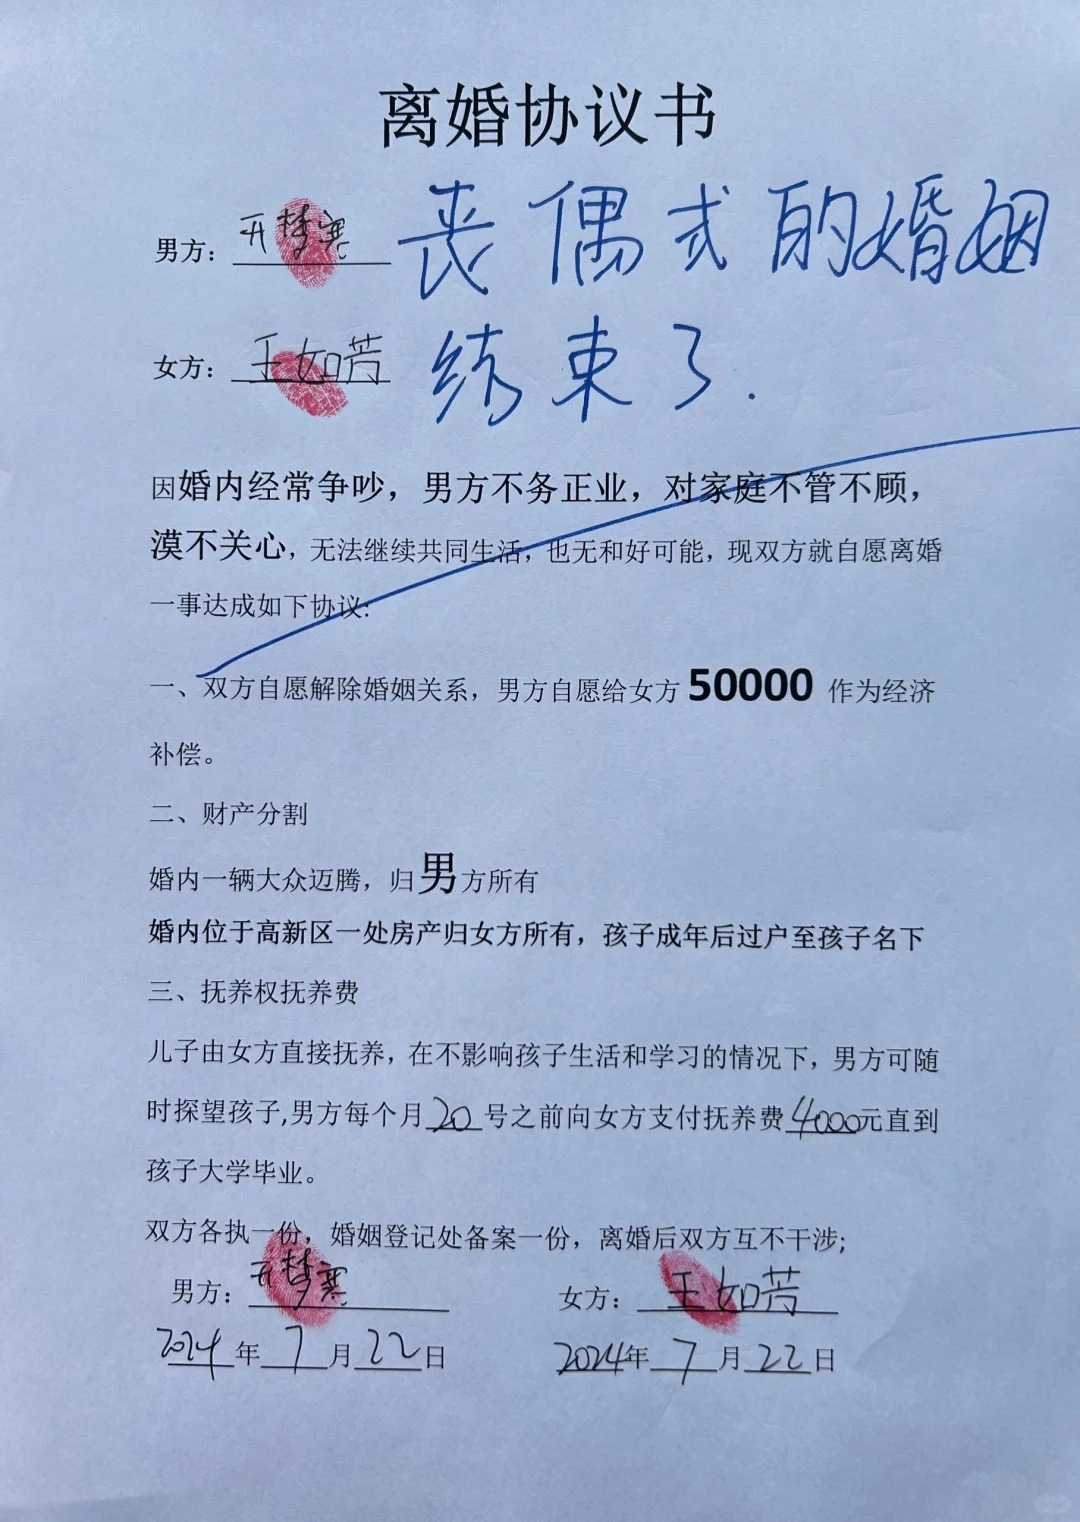 离婚协议书
男方：开梦寒 丧偶式的婚姻
女方：王如芳 结束了.
因婚内经常争吵，男方不务正业，对家庭不管不顾，
漠不关心，无法继续共同生活，也无和好可能，现双方就自愿离婚
一事达成如下协议:
一、双方自愿解除婚姻关系，男方自愿给女方 50000 作为经济
补偿。
二、财产分割
婚内一辆大众迈腾，归男方所有
婚内位于高新区一处房产归女方所有，孩子成年后过户至孩子名下
三、抚养权抚养费
儿子由女方直接抚养，在不影响孩子生活和学习的情况下，男方可随
时探望孩子,男方每个月20号之前向女方支付抚养费4000元直到
孩子大学毕业。
双方各执一份，婚姻登记处备案一份，离婚后双方互不干涉;
男方：开梦寒 女方：王如芳
2024年7月22日 2024年7月22日